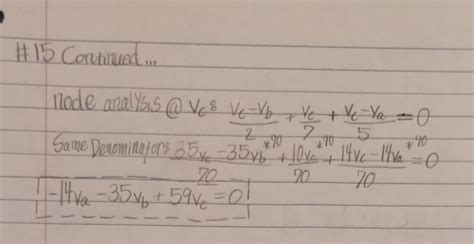 #15 Continued...
node analysis @ Vc: Vc-Vb/2 + Vc/7 + Vc-Va/5 = 0
Same Denominator: 35Vc-35Vb/70 *70 + 10Vc/70 *70 + 14Vc-14Va/70 *70 = 0
-14Va-35Vb+59Vc=0